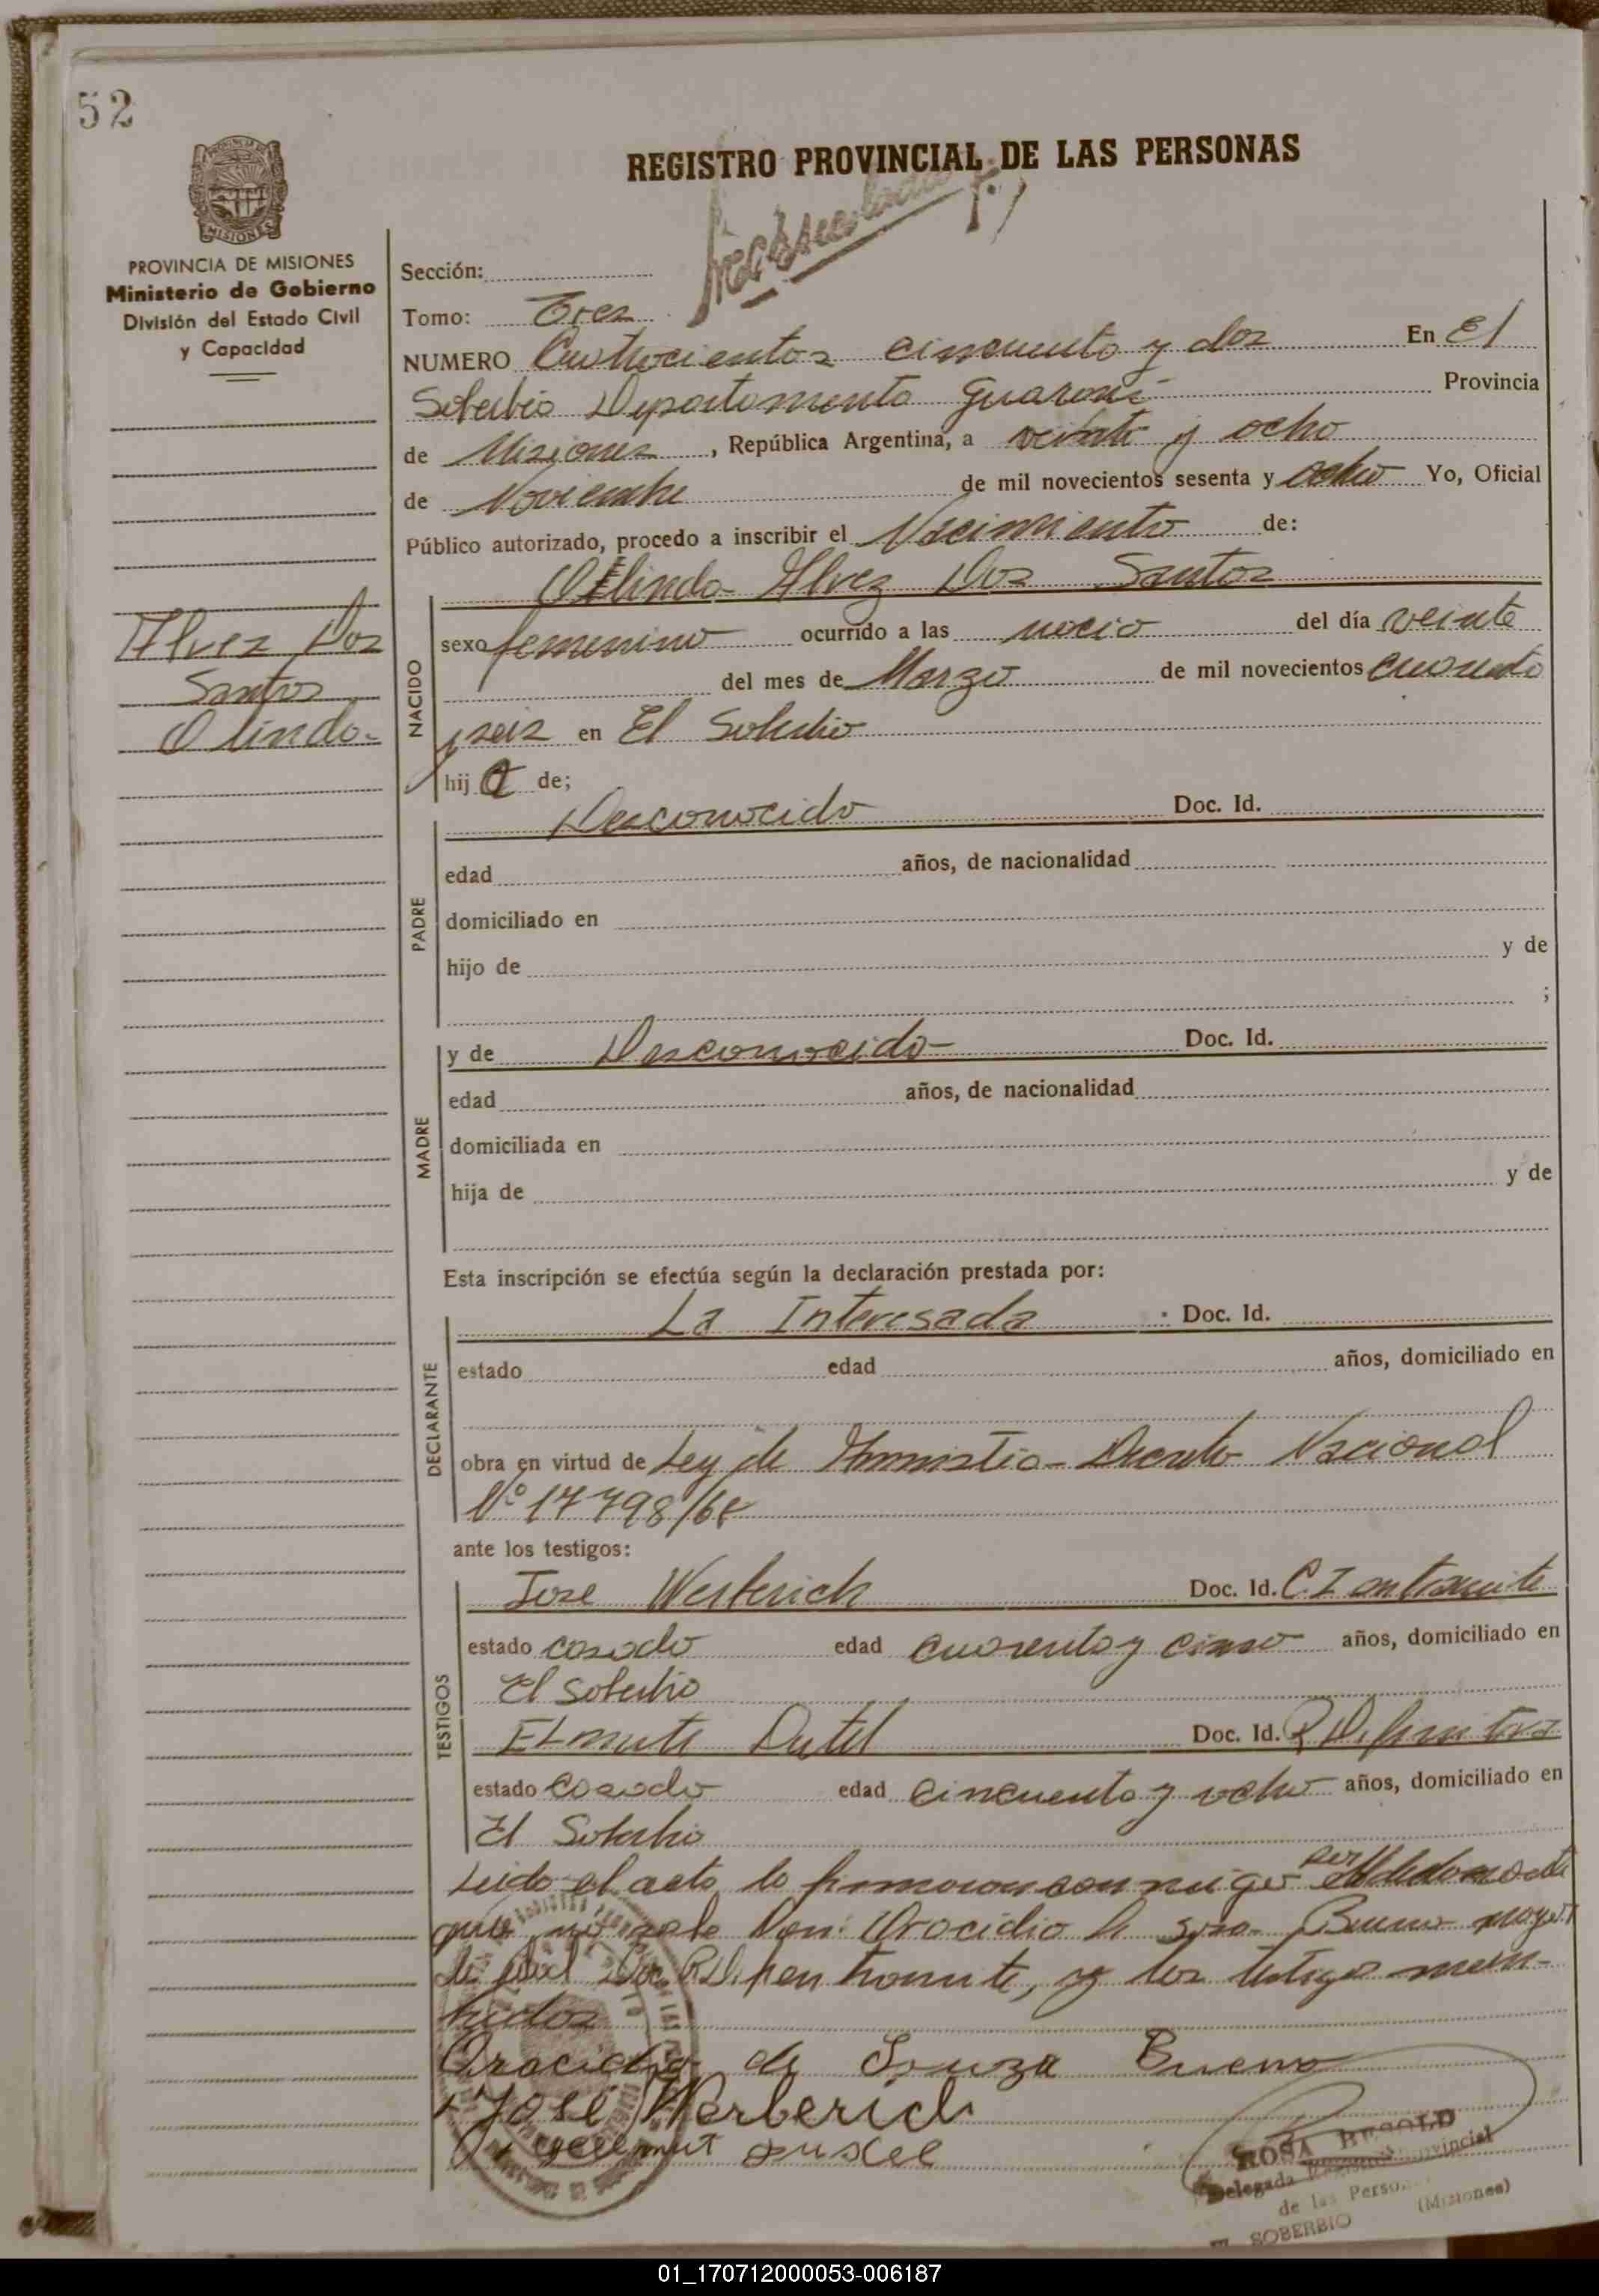 52
REGISTRO PROVINCIAL DE LAS PERSONAS
MISIONES
PROVINCIA DE MISIONES
Ministerio de Gobierno
División del Estado Civil
y Capacidad
Sección:
Tomo: Tres
NUMERO Cuatrocientos cincuenta y dos En El
Soberbio Departamento Guarani Provincia
de Misiones, República Argentina, a veinte y ocho
de Noviembre de mil novecientos sesenta y ocho Yo, Oficial
Público autorizado, procedo a inscribir el Nacimiento de:
Olinda Alvez Dos Santos
Alvez Dos
Santos
Olinda.
NACIDO
sexo femenino ocurrido a las del día veinte
del mes de Marzo de mil novecientos cuarenta
y seis en El Soberbio
hija de;
PADRE
Desconocido Doc. Id.
edad años, de nacionalidad
domiciliado en
hijo de y de
;
MADRE
y de Desconocida Doc. Id.
edad años, de nacionalidad
domiciliada en
hija de y de
Esta inscripción se efectúa según la declaración prestada por:
DECLARANTE
La Interesada Doc. Id.
estado edad años, domiciliado en
obra en virtud de Ley de Amnistia - Decreto Nacional
Nº 17798/68
ante los testigos:
TESTIGOS
Jose Werberich Doc. Id. C I en tramite
estado casado edad cuarenta y cinco años, domiciliado en
El Soberbio
Doc. Id.
estado casado edad cincuenta y ocho años, domiciliado en
El Soberbio
Leido el acta la firmaron conmigo por
que no sabe Don: Orocidio de Bueno mayor
de edad en tramite, y los testigos men-
Orocidio de Souza Bueno
José Werberich
ROSA BEGOLD
Delegada Registro Provincial
de las Personas
EL SOBERBIO (Misiones)
01_170712000053-006187